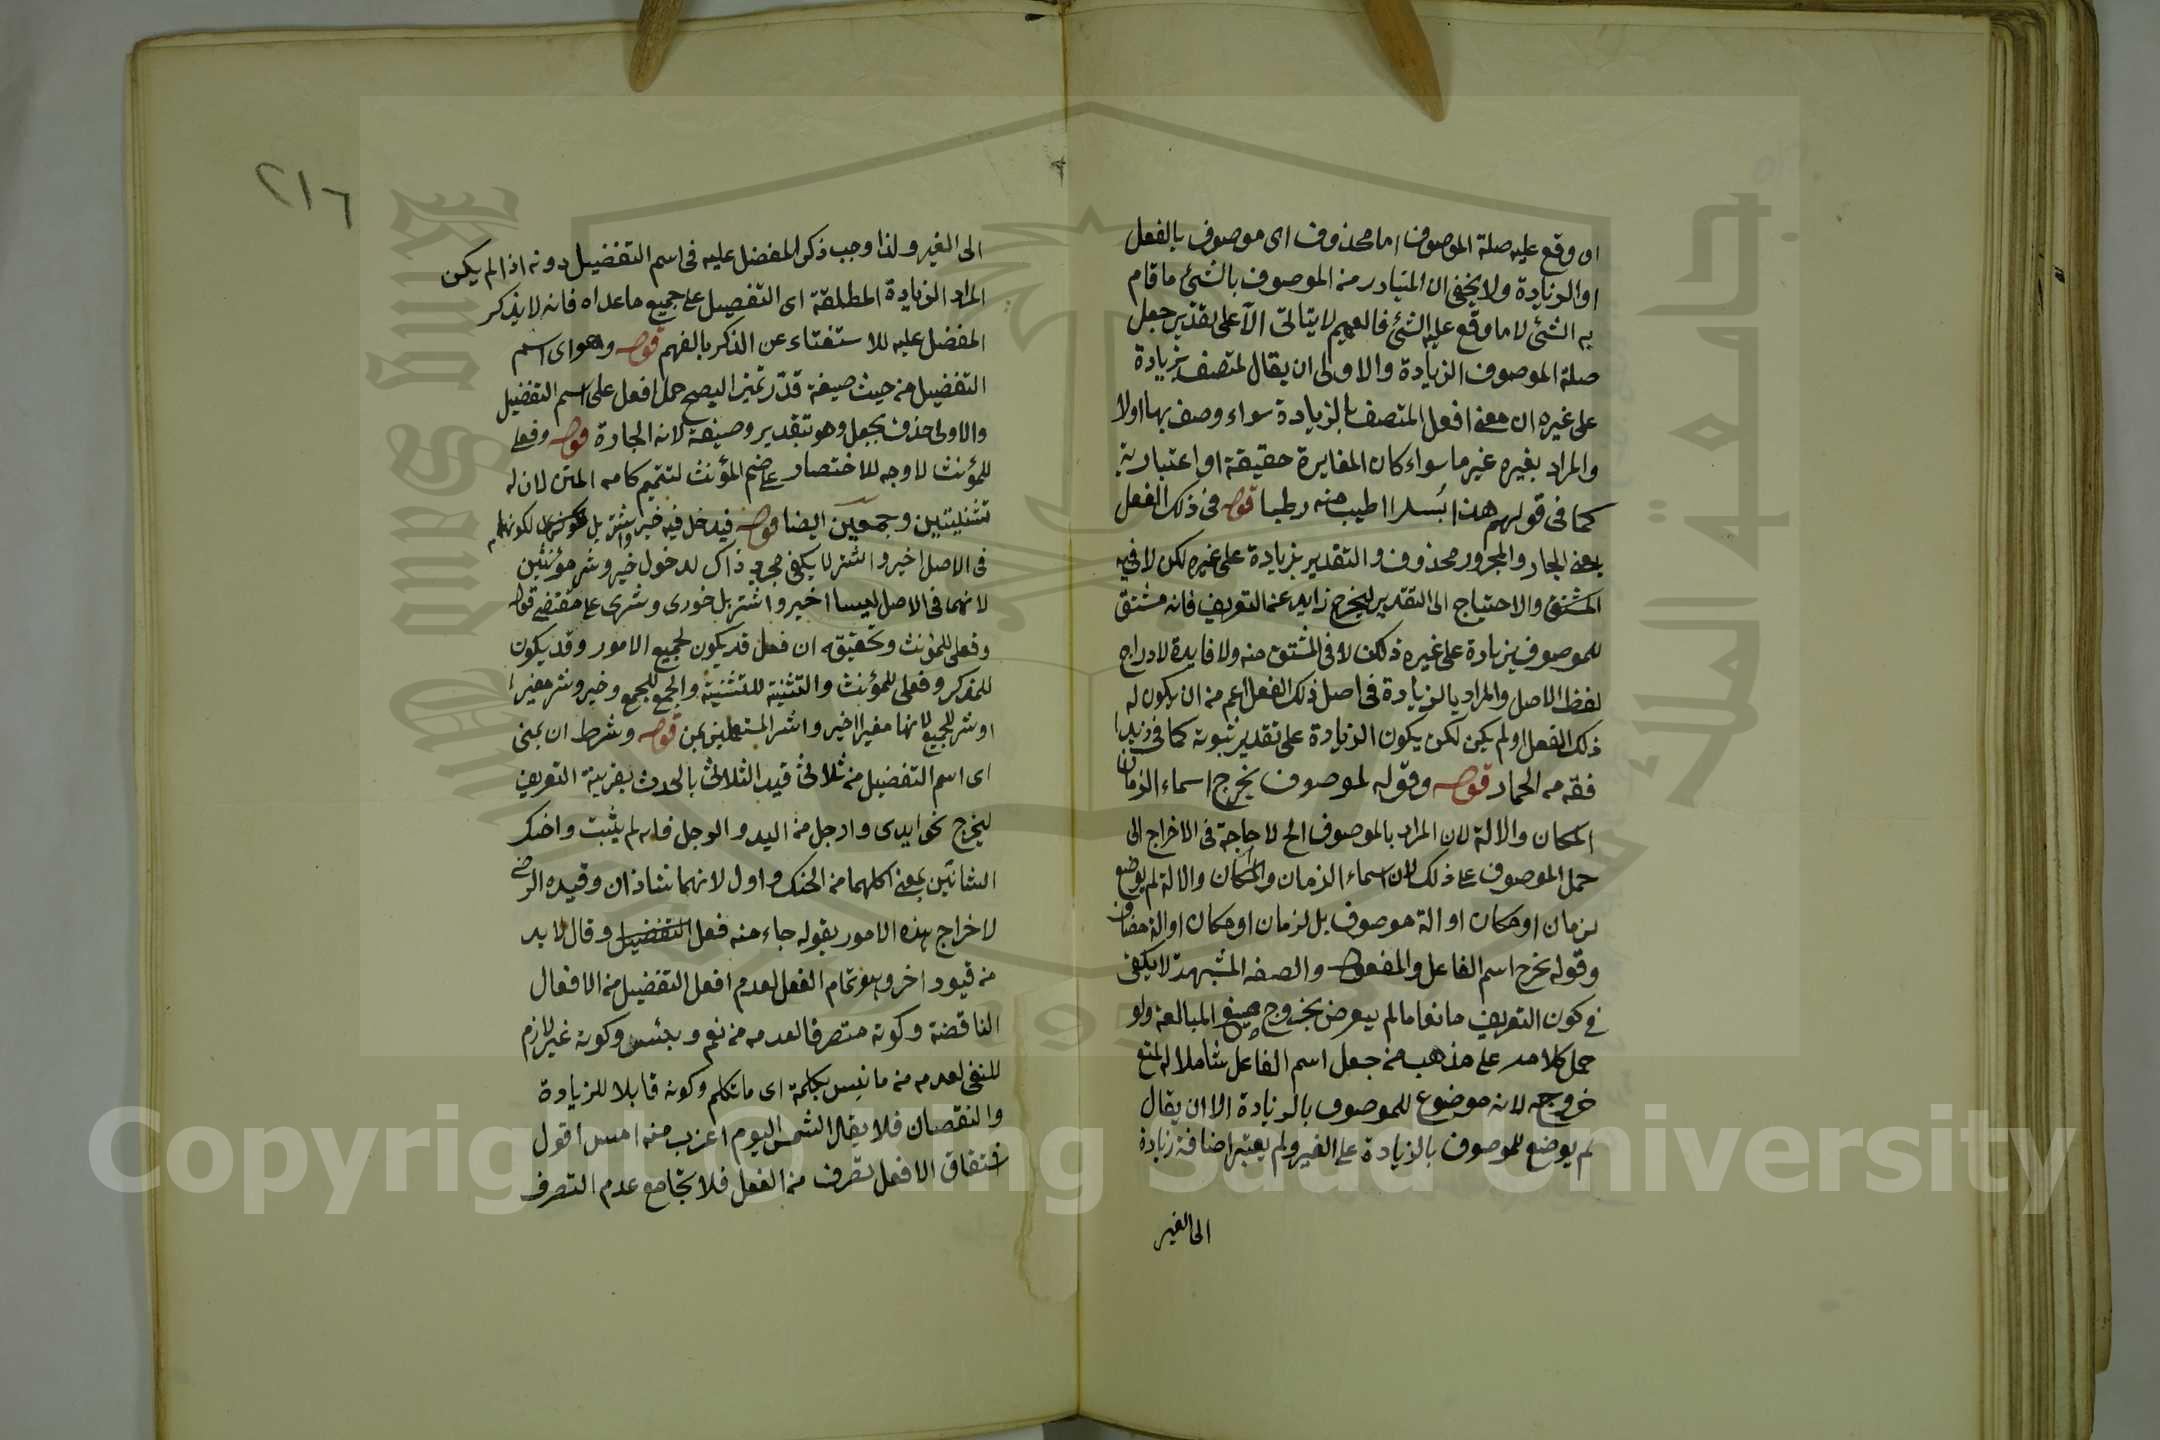 او وقع عليه صلة الموصوف اما محذوف اى موصوف بالفعل
او الزيادة ولا يخفى ان المتبادر من الموصوف بالشئ ما قام
به الشئ لا ما وقع عليه الشئ فالعميم لا يتاتى الا على تقدير جعل
صلة الموصوف الزيادة والاولى ان يقال لمتصف بزيادة
على غيره ان معنى افعل المتصف بالزيادة سواء وصف بها اولا
والمراد بغيره غير ما سواء كان المغايرة حقيقة او اعتبارية
كما فى قولهم هذا بسرا اطيب منه رطبا قوله فى ذلك الفعل
يعنى الجار والمجرور محذوف والتقدير بزيادة على غيره لكن لا فيه
المشتق والاحتياج الى التقدير ليخرج زايد عن التعريف فانه مشتق
للموصوف بزيادة على غيره ذلك لا فى المشتق منه ولا فايدة لادراج
لفظ الاصل والمراد بالزيادة فى اصل ذلك الفعل اعم من ان يكون له
ذلك الفعل او لم يكن لكن يكون الزيادة على تقدير ثبوته كما فى زيد
فقه من الحمار قوله وقوله لموصوف يخرج اسماء الزمان
المكان والالة لان المراد بالموصوف الخ لا حاجة فى الاخراج الى
حمل الموصوف على ذلك لان اسماء الزمان والمكان والالة لم يوضع
لزمان او مكان او الة موصوف بل لزمان او مكان او الة مضاف
وقوله يخرج اسم الفاعل والمفعول والصفه المشبهة لا يكفى
فى كون التعريف مانعا ما لم يتعرض بخروج صيغ المبالغة ولو
حمل كلامه على مذهب من جعل اسم الفاعل شاملا له لمنع
خروجه لانه موضوع للموصوف بالزيادة الا ان يقال
لم يوضع للموصوف بالزيادة على الغير ولم يعتبر اضافة زيادة
الى الغير
٢١٦
الى الغير ولذا وجب ذكر المفضل عليه فى اسم التفضيل دونه اذا لم يكن
المراد الزيادة المطلقة اى التفضيل على جميع ما عداه فانه لا يذكر
المفضل عليه للاستغناء عن الذكر بالفهم قوله وهو اى اسم
التفضيل من حيث صيغة قدر تميز اليصح حمل افعل على اسم التفضيل
والاولى حذف يجعل وهو بتقدير وصيغة لانه الجادة قوله وفعلى
للمؤنث لا وجه للاختصار على ضم المؤنث لتتميم كلامه المتن لان له
تثنيتين وجمعين ايضا قوله فيدخل فيه خير وشر لكونهما
فى الاصل اخير واشر لا يكفى مجرد ذاك لدخول خير وشر مؤنثين
لانهما فى الاصل ليسا اخير واشر بل خورى وشرى على مقتضى قوله
وفعلى للمؤنث وتحقيقه ان فعل قد يكون لجميع الامور وقد يكون
للمذكر وفعلى للمؤنث والتثنية للتثنية والجمع للجمع وخير وشر مغير
او شر للجميع لانهما مغيرا اخير واشر المستعملين بمن قوله وشرط ان يبنى
اى اسم التفضيل من ثلاثى قيد الثلاثى بالحدث بقرينة التعريف
ليخرج نحو ايدى وارجل من اليد والرجل فانه لم يثبت واحنك
الشاتين بمعنى اكلهما من الحنك واول لانهما شاذان وقيده الرضى
لاخراج هذه الامور بقوله جاء منه فعل التفضيل وقال لا بد
من قيود اخر وهو تمام الفعل لعدم افعل التفضيل من الافعال
الناقصة وكونه متصرفا لعدمه من نعم وبئس وكونه غير لازم
للنفى لعدمه من ما نبس بكلمة اى ما تكلم وكونه قابلا للزيادة
والنقصان فلا يقال الشمس اليوم اغرب منه امس اقول
اشتقاق الافعل تصرف من الفعل فلا يجامع عدم التصرف